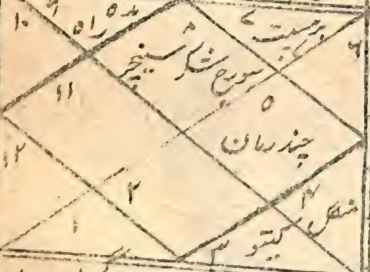 ۱۰ ۹ بدھ راہ ۸ برہسپت ۷ ۶
سورج شکر سنیچر
۱۱ ۵
چندرماں
۱۲ ۲ ۴ منگل
۱ ۳ کیتو